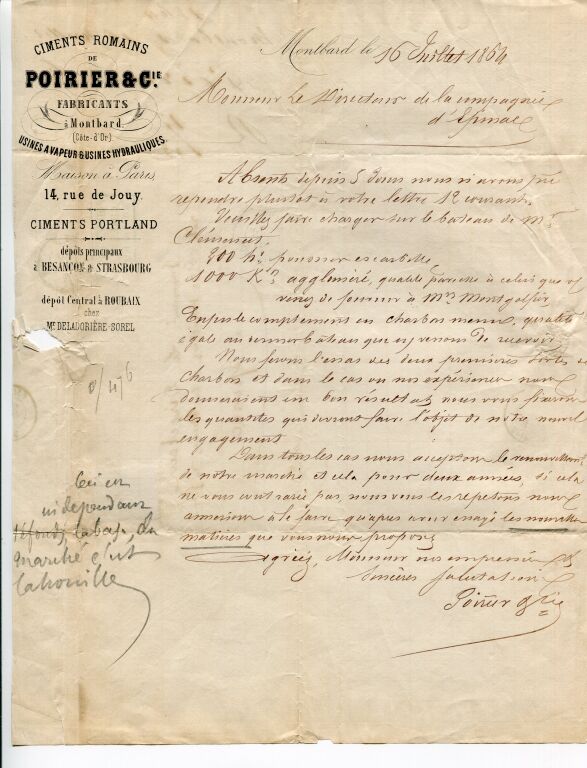 CIMENTS ROMAINS
DE
POIRIER & C.IE
FABRICANTS
à Montbard.
(Côte-d'Or)
USINES A VAPEUR & USINES HYDRAULIQUES.
Maison à Paris
14, rue de Jouy.
CIMENTS PORTLAND
dépôts principaux
à BESANÇON & STRASBOURG
dépôt Central à ROUBAIX
chez
Mr. DELADORIÈRE-SOREL
Montbard le 16 Juillet 1864
Monsieur Le Directeur de la compagnie
d'Epinac
Absents depuis 5 Jours nous n'avons pu
répondre plustôt à votre lettre 12 courant.
Veuillez faire charger sur le bateau de Mr
Clément,
200 h. poussier escarbille
1000 K. aggloméré, qualité pareille à celui que
venez de fournir à Mr Montgolfier
Enfin le complement en charbon menu, qualité
égale au dernier bâteau que venons de recevoir
Nous ferons l'essai des deux premières sortes de
charbon et dans le cas ou nos expériences nous
donneraient un bon résultat nous vous fixerons
les quantités qui devront faire l'objet de notre nouvel
engagement.
Dans tous les cas nous acceptons le renouvellement
de notre marché et cela pour deux années, si cela
ne vous contrarie pas, nous vous le répétons nous
à le faire qu'après avoir essayé les nouvelles
matières que vous nous proposez
Agréez, Monsieur nos empressées &
Sincères salutations
Poirier & Cie
Ceci est
indépendant
la base du
marché c'est
la houille